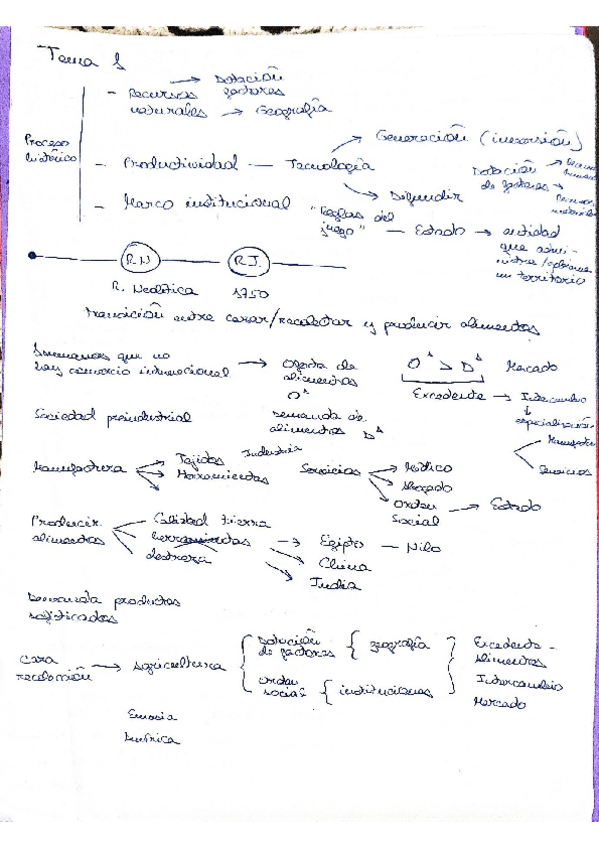 Tema 1
Proceso histórico
- Recursos naturales → Dotación factores
→ Geografía
- Productividad — Tecnología → Generación (inversión)
→ Difundir
- Marco institucional "Reglas del juego" — Estado → entidad que administra/gobierna un territorio
Dotación de factores → Recursos humanos
→ Recursos materiales
R.N R.I.
R. Neolítica 1750
transición entre cazar/recolectar y producir alimentos
Suponemos que no hay comercio internacional → Oferta de alimentos Oᴬ
Oᴬ > Dᴬ Mercado
Excedente → Intercambio
↓
especialización
Manufactura
Servicios
Sociedad preindustrial
Demanda de alimentos Dᴬ
Manufacturera → Tejidos Industria
→ Herramientas
Servicios → Médico
→ Abogado
→ Orden Social → Estado
Producir alimentos — Calidad tierra
herramientas → Egipto — Nilo
destreza → China
→ India
Demanda productos sofisticados
caza recolección → agricultura { Dotación de factores { geografía
orden social { instituciones
} Excedente - alimentos
Intercambio
Mercado